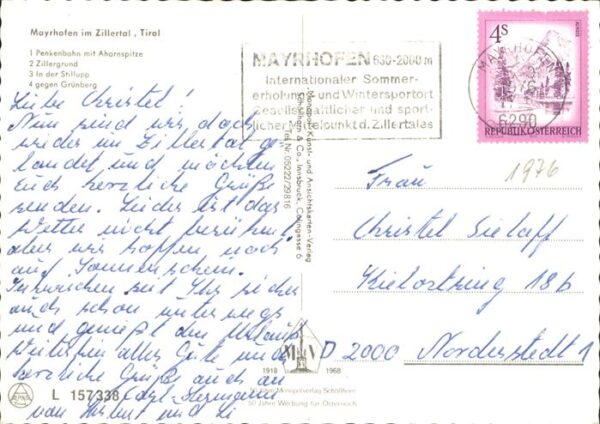 Mayrhofen im Zillertal , Tirol
1 Penkenbahn mit Ahornspitze
2 Zillergrund
3 In der Stillupp
4 gegen Grünberg
Liebe Christel!
Nun sind wir doch
wieder im Zillertal ge-
landet und möchten
Euch herzliche Grüße
senden. Leider ist das
Wetter nicht berühmt,
aber wir hoffen noch
auf Sonnenschein.
Inzwischen seit Ihr sicher
auch schon unterwegs
und genießt den Urlaub.
Weiterhin alles Gute und
herzliche Grüße auch an
von Herbert und
L 157338
MAYRHOFEN 630-2060 m
Internationaler Sommer-
erholungs- und Wintersportort
Gesellschaftlicher und sport-
licher Mittelpunkt d. Zillertales
MAYRHOFEN
6290
4S
REPUBLIK ÖSTERREICH
1976
Monopol Kunst- und Ansichtskarten-Verlag
Schöllhorn & Co., Innsbruck,
Tel. Nr. 05222/29816
Frau
Christel Sielaff
Kielortring 18b
D 2000 Norderstedt 1
M V
1918 1968
50 Jahre Monopolverlag Schöllhorn
50 Jahre Werbung für Österreich